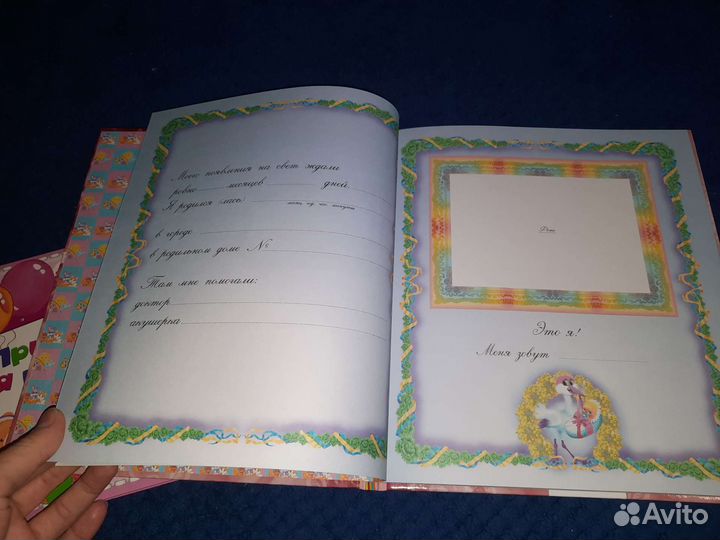 Моего появления на свет ждали
ровно месяцев дней.
Я родился (лась)
в городе
в родильном доме №
Там мне помогали:
доктор
акушерка
Фото
Это я!
Меня зовут
Avito